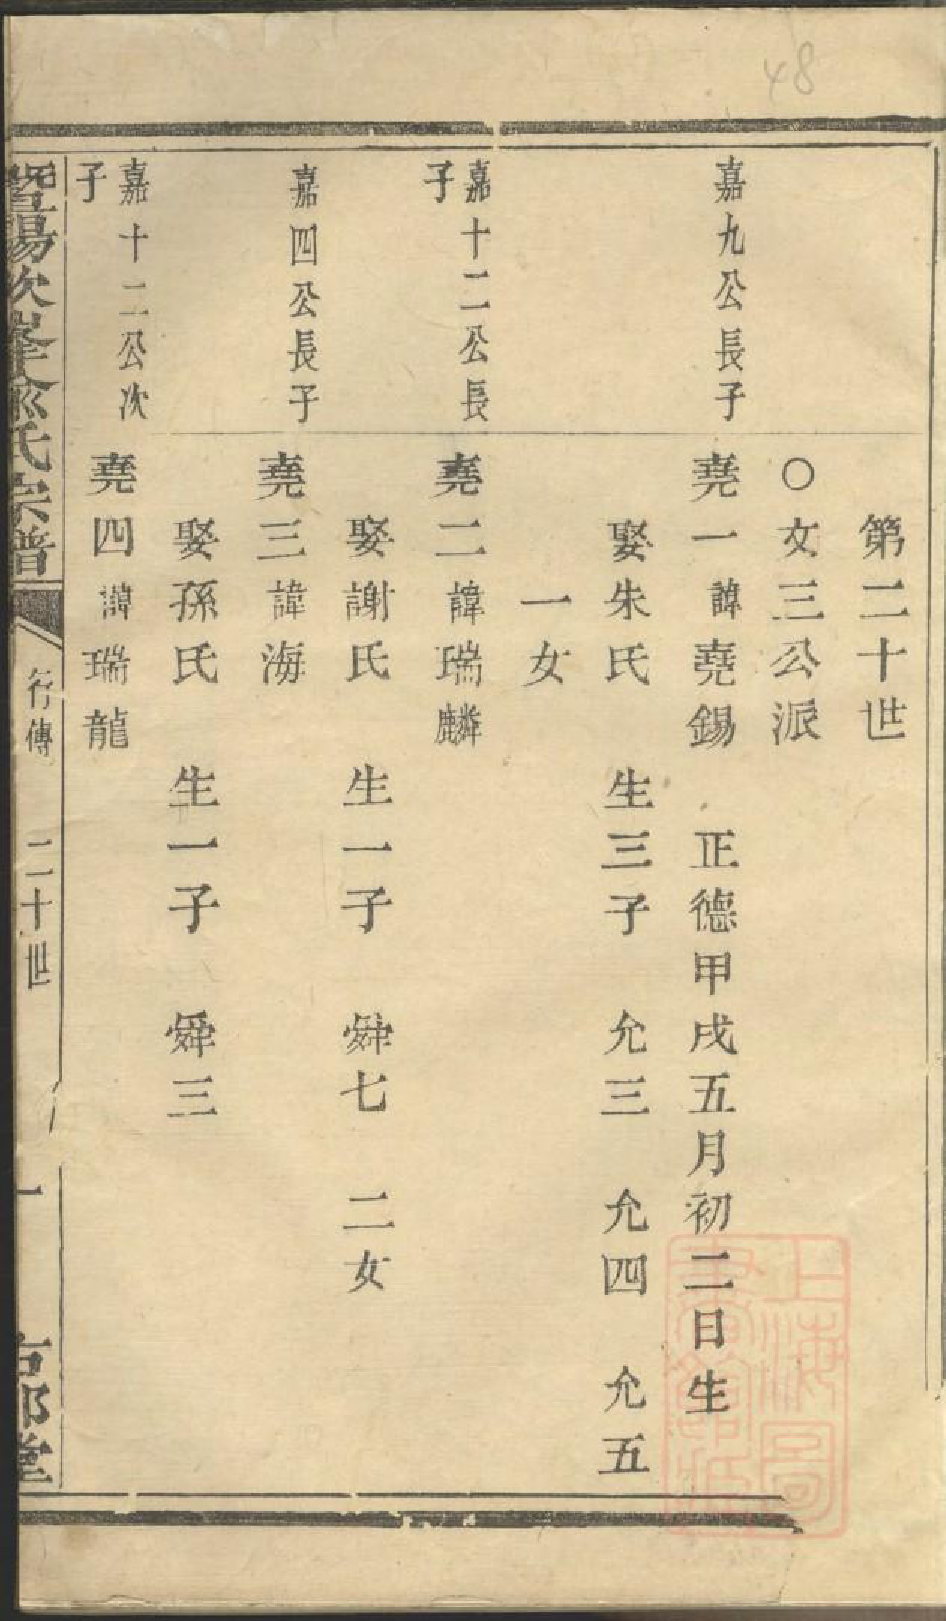 48
第二十世
○文三公派
嘉九公長子
堯一諱堯錫 正德甲戌五月初二日生
娶朱氏 生三子 允三 允四 允五
一女
嘉十二公長
子
堯二諱瑞麟
娶謝氏 生一子 舜七 二女
嘉四公長子
堯三諱海
娶孫氏 生一子 舜三
嘉十二公次
子
堯四諱瑞龍
暨陽次峯俞氏宗譜 行傳 二十世 一
上海圖
書館藏